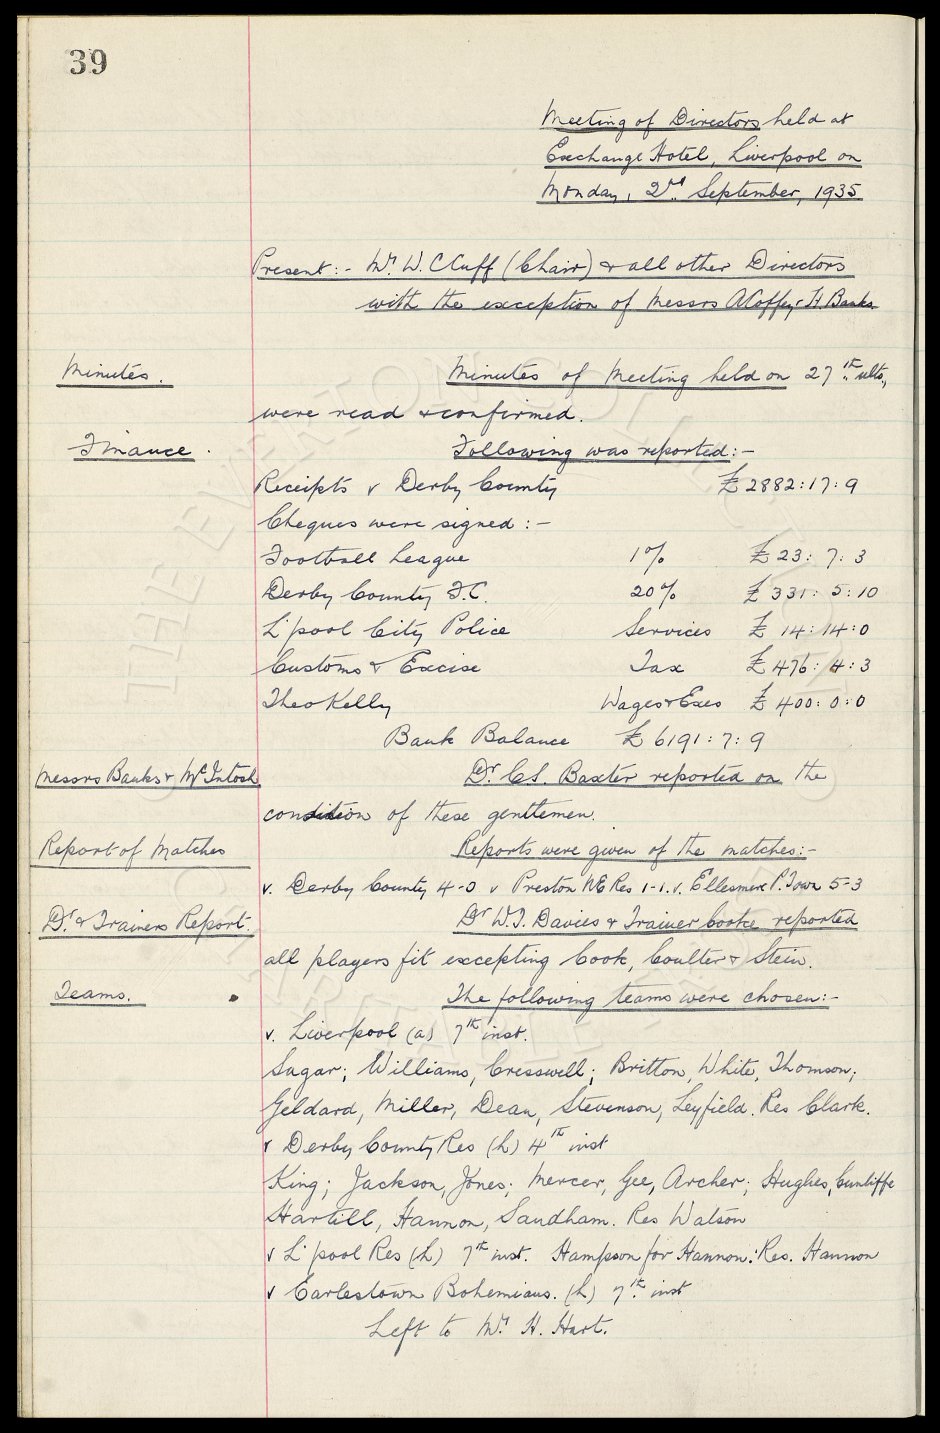 39
Meeting of Directors held at
Exchange Hotel, Liverpool on
Monday, 2nd September, 1935
Present:- Mr. W. C Cuff (Chair) & all other Directors
with the exception of Messrs A Coffey & H. Banks.
Minutes. Minutes of Meeting held on 27th ulto,
were read & confirmed.
Finance. Following was reported:-
Receipts v Derby County £2882:17:9
Cheques were signed:-
Football League 1% £23:7:3
Derby County F.C. 20% £331:5:10
L'pool City Police Services £14:14:0
Customs & Excise Tax £476:4:3
Theo Kelly Wages & Exes £400:0:0
Bank Balance £6191:7:9
Messrs Banks & McIntosh Dr. C.S. Baxter reported on the
condition of these genttemen.
Report of Matches Reports were given of the matches:-
v. Derby County 4-0 v Preston N E Res 1-1. v. Ellesmere P. Town 5-3
Dr. & Trainers Report. Dr W.J. Davies & Trainer Cooke reported
all players fit excepting Cook, Coulter & Stein.
Teams. The following teams were chosen:-
v. Liverpool (a) 7th inst.
Sagar; Williams, Cresswell; Britton, White, Thomson;
Geldard, Miller, Dean, Stevenson, Leyfield. Res Clark.
v Derby County Res (h) 4th inst
King; Jackson, Jones; Mercer, Gee, Archer; Hughes, Cunliffe
Hartill, Hannon, Sandham. Res Watson
v L'pool Res (h) 7th inst. Hampson for Hannon: Res. Hannon
v Earlestown Bohemians. (h) 7th inst
Left to Mr. H. Hart.